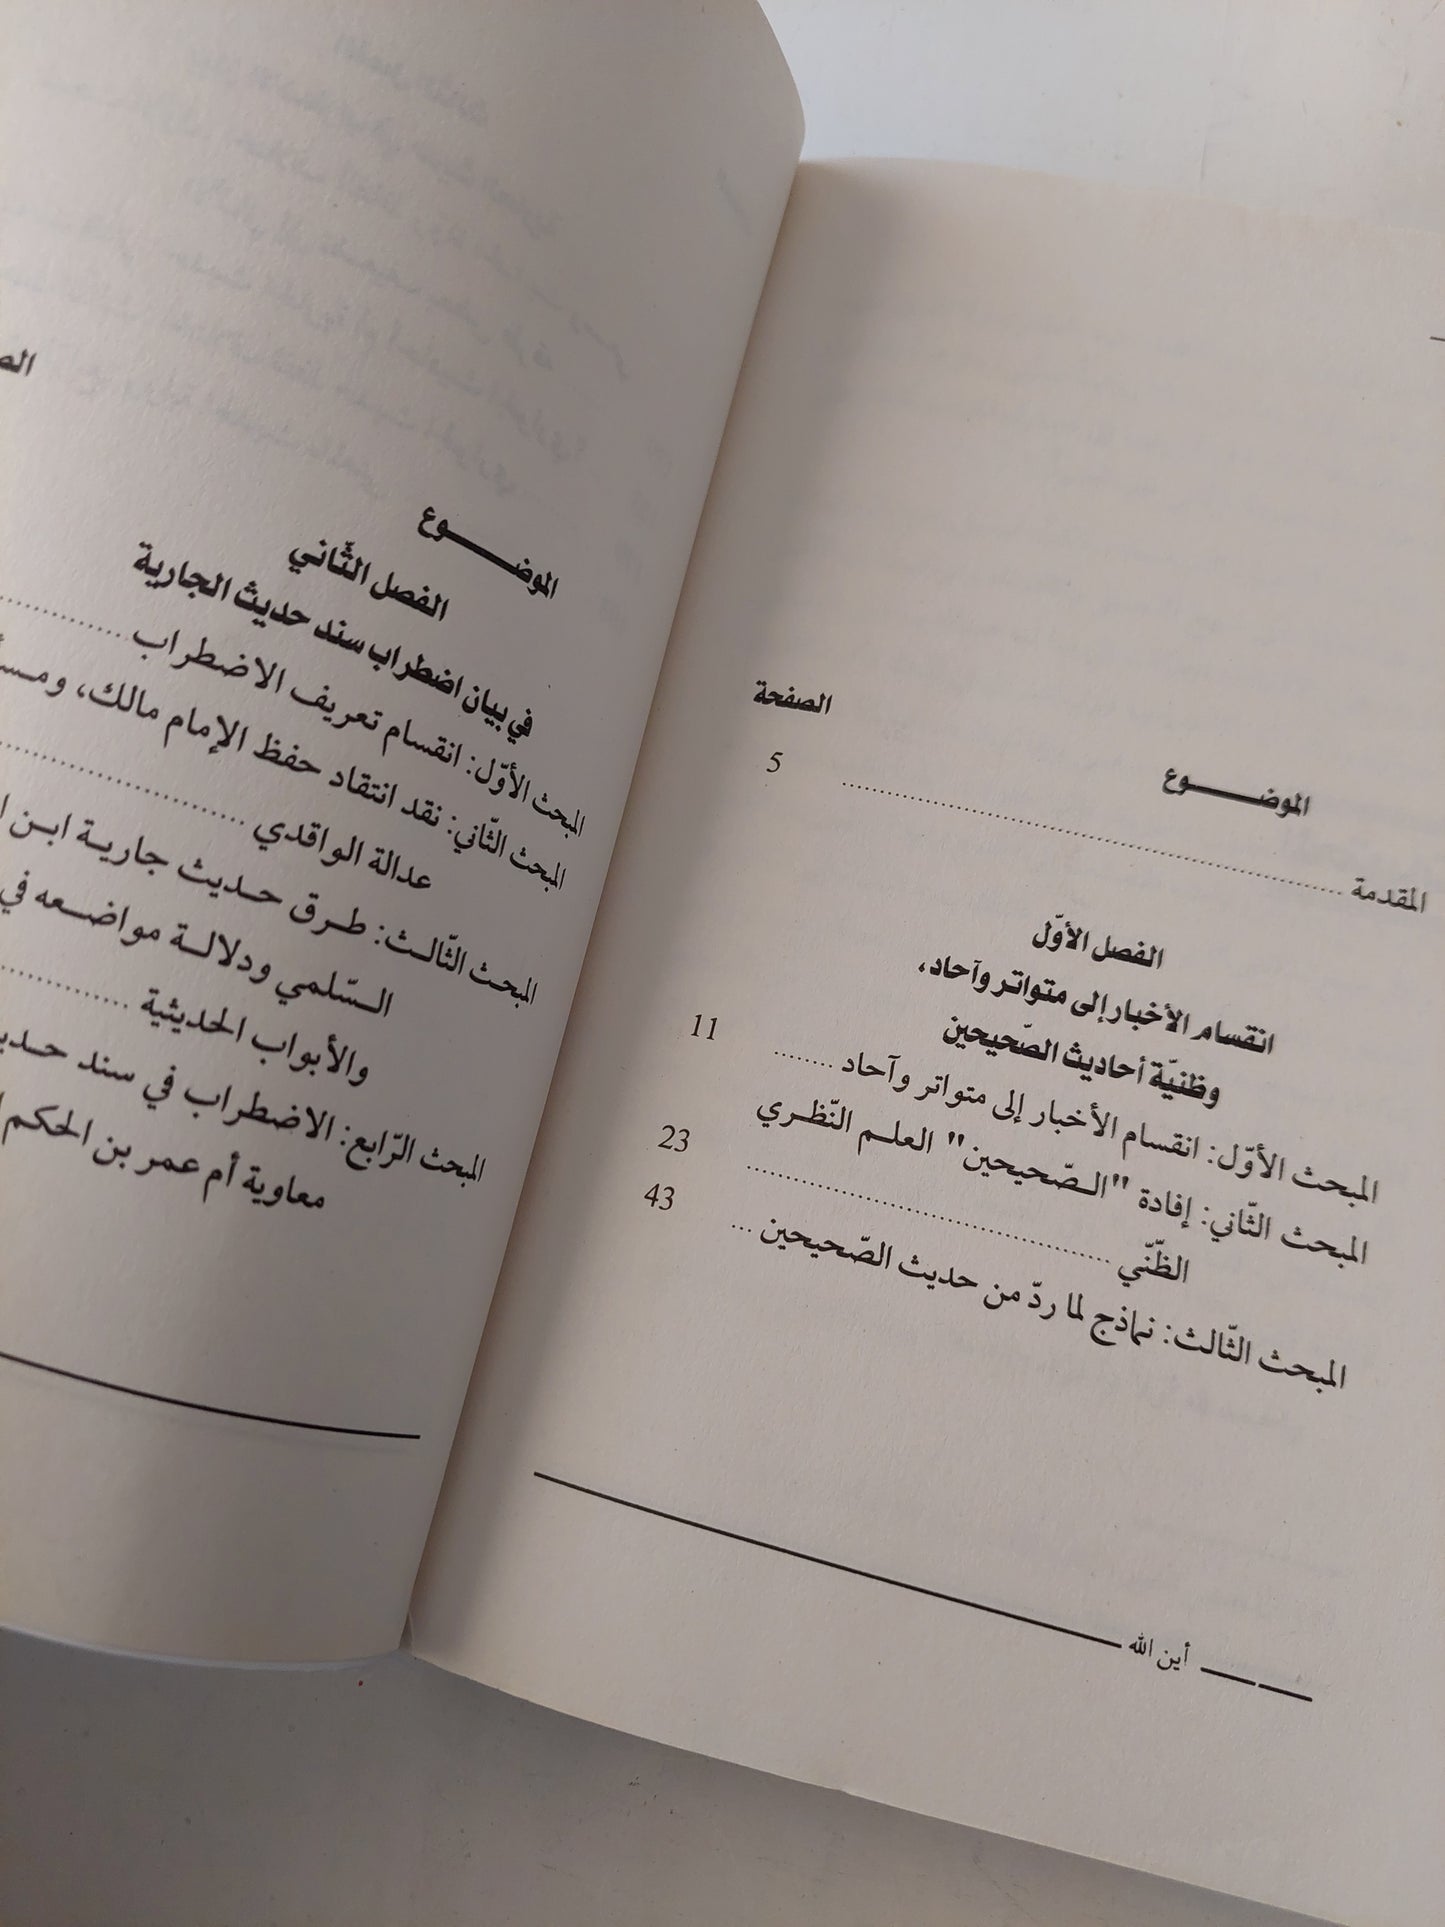 الموضـــــــوع
الصفحة
المقدمة ........................................ 5
الفصل الأوّل
انقسام الأخبار إلى متواتر وآحاد،
وظنيّة أحاديث الصّحيحين
المبحث الأوّل: انقسام الأخبار إلى متواتر وآحاد ....... 11
المبحث الثّاني: إفادة "الـصّحيحين" العلـم النّظـري
الظّنّي ........................................ 23
المبحث الثّالث: نماذج لما ردّ من حديث الصّحيحين ... 43
أين الله
الموضـــــــوع
الفصل الثّاني
في بيان اضطراب سند حديث الجارية
المبحث الأوّل: انقسام تعريف الاضطراب ............
المبحث الثّاني: نقد انتقاد حفظ الإمام مالك،
عدالة الواقدي ........................
المبحث الثّالـث: طـرق حـديث جاريـة ابـن
الـسّلمي ودلالـة مواضـعه في
والأبواب الحديثية ............
المبحث الرّابع: الاضطراب في سند
معاوية أم عمر بن الحكم